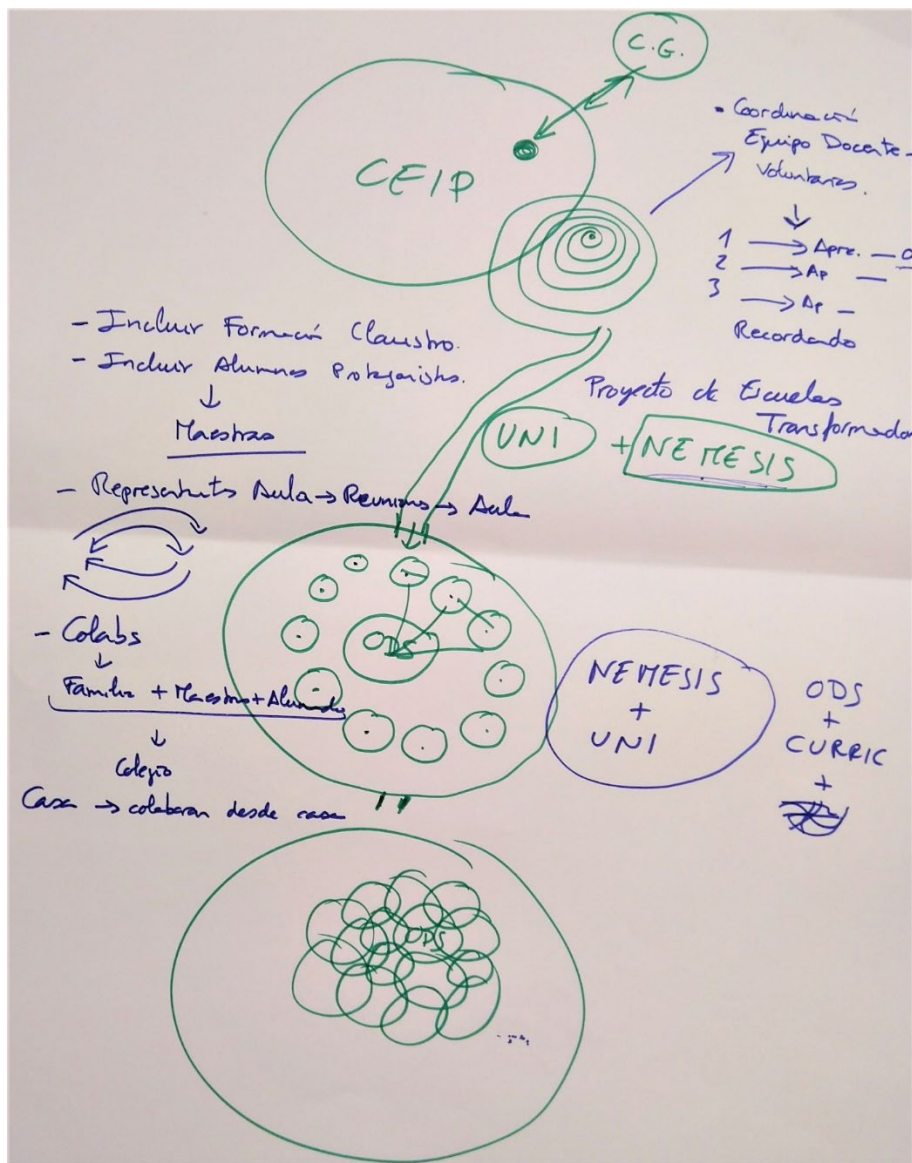 C.G.
CEIP
- Coordinación
Equipo Docente -
Voluntarios.
1 → Apre. —
2 → Ap —
3 → Ap —
Recordando
- Incluir Formación Claustro.
- Incluir Alumnos Protagonistas.
↓
Maestras
Proyecto de Escuelas
Transformador
UNI + NEMESIS
- Representantes Aula → Reuniones → Aula
- Colabs
↓
Familia + Maestros + Alumnado
↓
Colegio
Casa → colaboran desde casa
ODS
NEMESIS
+
UNI
ODS
+
CURRIC
+
ODS